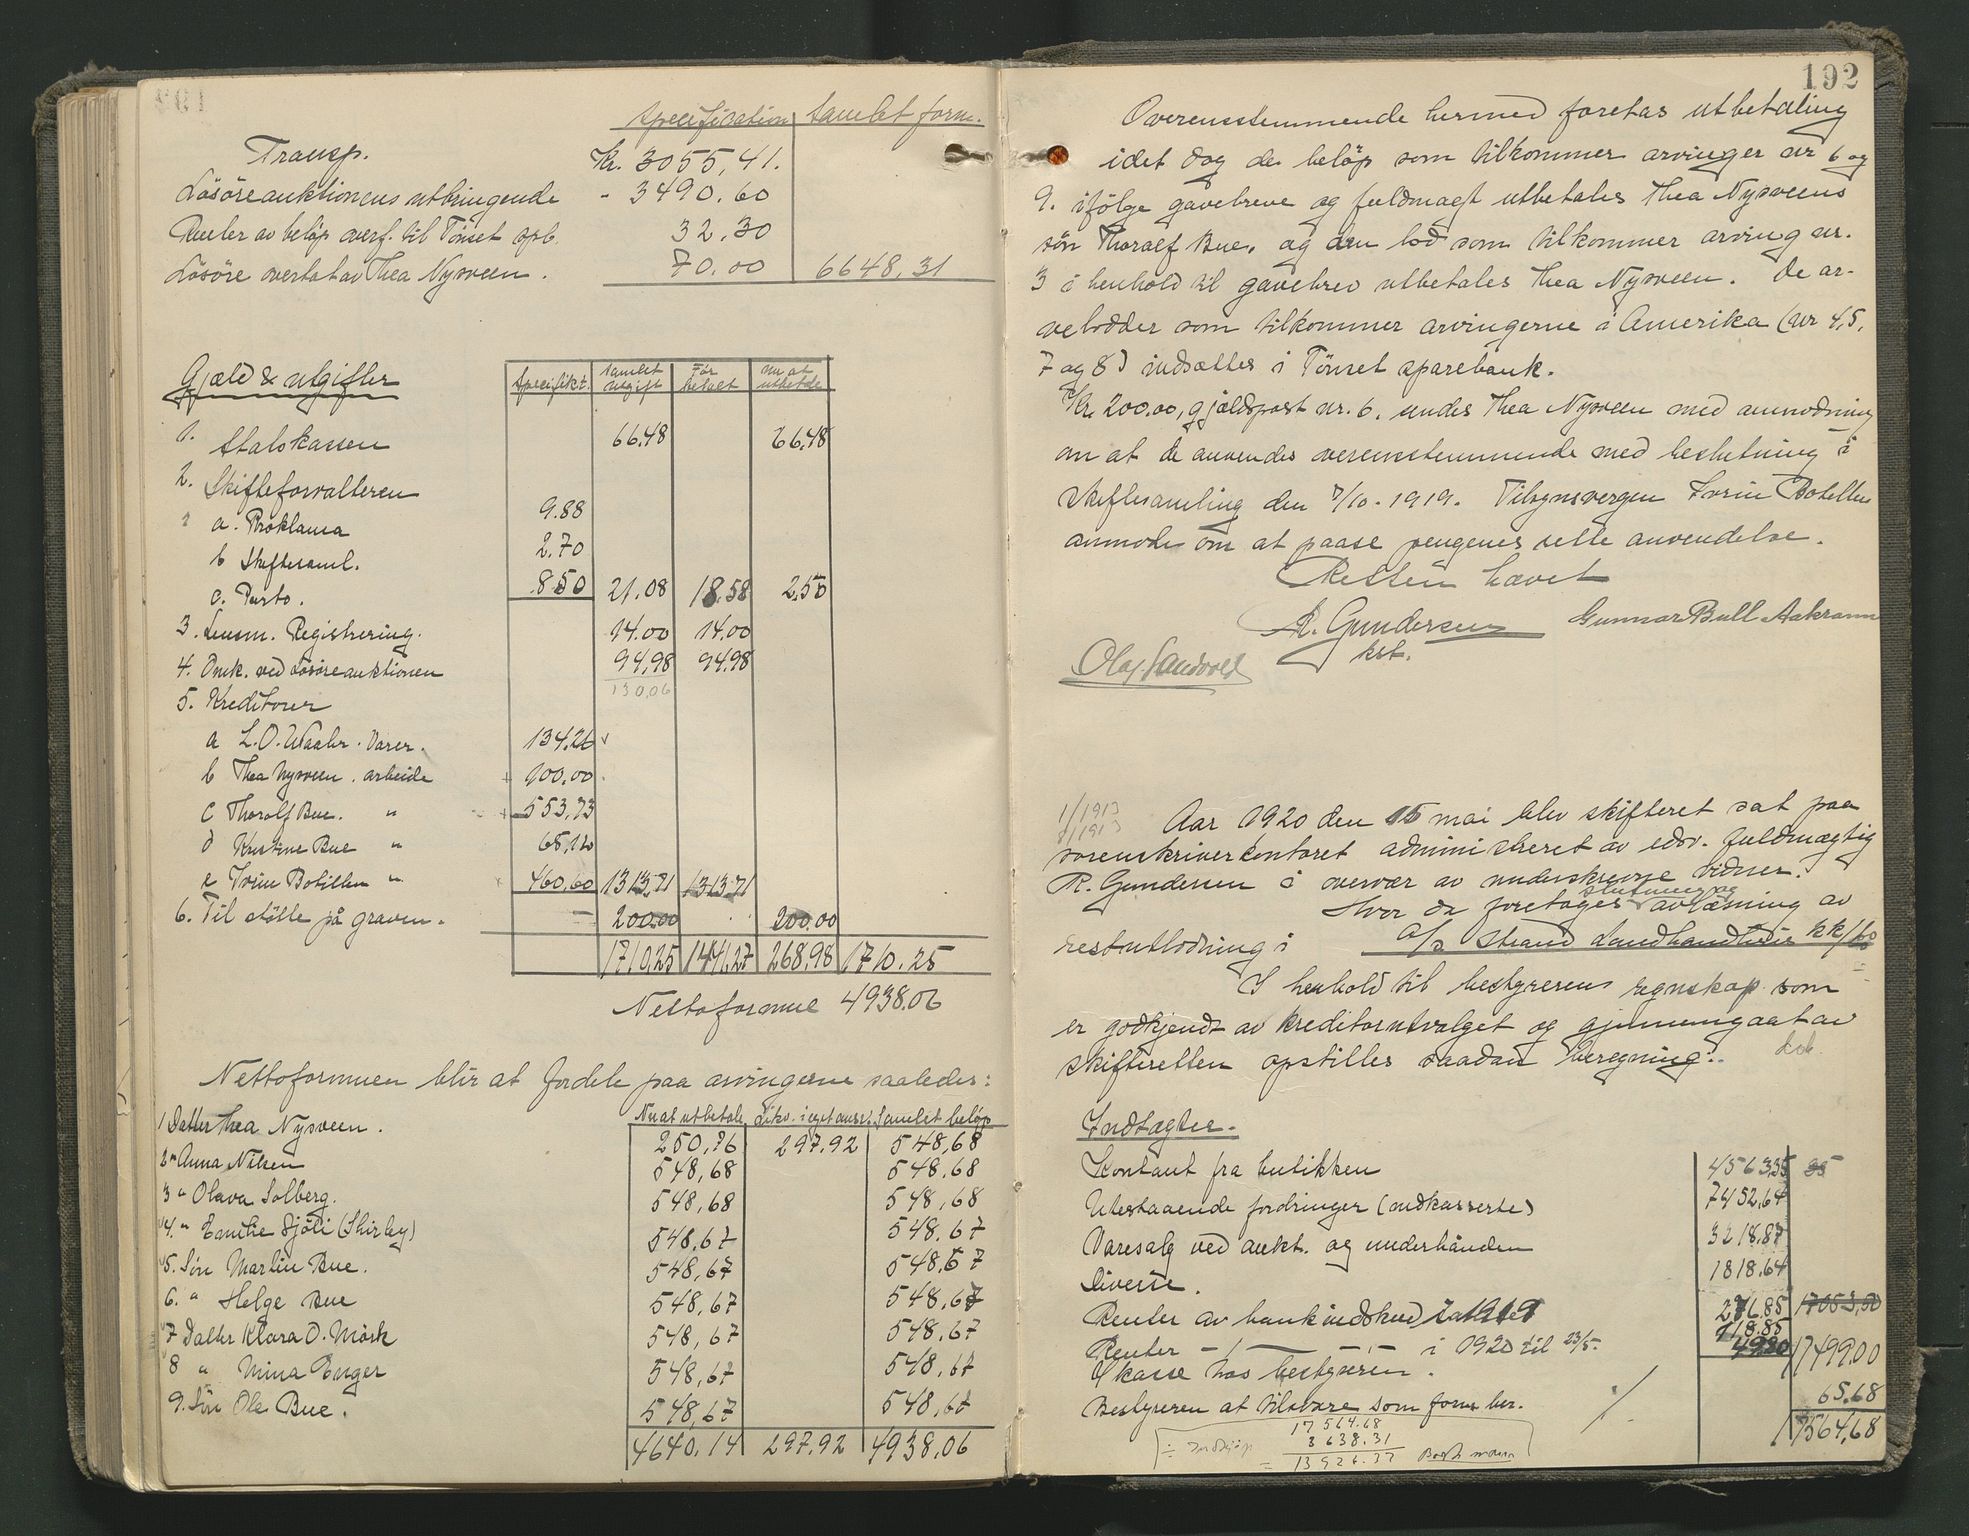 Specification Samlet form.
Transp. Kr. 3055,41.
Lösöreauktionens utbringende - 3490.60
Renter av beløp overf. til Tönset spb. 32.30
Lösöre overtat av Thea Nysveen. 70.00 6648.31
Gjæld & utgifter Specifikt. Samlet utgift Før betalt nu at utbetale
1. Statskassen 66.48 66.48
2. Skifteforvalteren
a. Proklama 9.88
b Skiftesaml. 2.70
c. Porto. 8.50 21.08 18.58 2.50
3. Lensm. Registrering. 14.00 14.00
4. Omk. ved Lösöreauktionen 94,98 94.98
130,06
5. Kreditorer
a L.O. Waaler. Varer. 134.26
b Thea Nysveen. arbeide 100.00
c Thoralf Bue. " 553,73
d Kristine Bue " 65,12
e Svein Botillen " 460,60 1313,71 1313.71
6. Til støtte på graven. 200.00 200.00
1710,25 1441,27 268,98 1710.25
Nettoformue 4938.06
Nettoformuen blir at fordele paa arvingerne saaledes:
Nu at utbetale Likv. i eget ansv. Samlet beløp
1 Datter Thea Nysveen. 250,76 297,92 548,68
2 " Anna Nilsen 548,68 548.68
3 " Olava Solberg. 548,68 548,68
4. " Emilie Sjöli (Shirley) 548,67 548.67
5. Søn Martin Bue. 548,67 548,67
6. " Helge Bue 548,67 548,67
7 Datter Klara O. Mörk 548,67 548,67
8 " Mina Enger 548,67 548,67
9. Søn Ole Bue. 548,67 548,67
4640,14 297,92 4938,06
192
Overensstemmende hermed foretas utbetaling
idet dog de beløp som tilkommer arvinger nr 6 og
9. ifölge gavebreve og fuldmagt utbetales Thea Nysveens
sön Thoralf Bue, og den lod som tilkommer arving nr.
3 i henhold til gavebrev utbetales Thea Nysveen. De ar-
velodder som tilkommer arvingerne i Amerika (nr 4,5,
7 og 8) indsættes i Tönset sparebank.
Kr. 200.00, gjældspost nr. 6. sendes Thea Nysveen med anmodning
om at de anvendes overensstemmende med beslutning i
skiftesamling den 7/10-1919. Tilsynsvergen Svein Botillen
anmodes om at paase pengenes rette anvendelse.
Retten hævet
R. Gundersen Gunnar Bull Aakrann
kst.
Olaf Sandvold
1/1913
1/1913
Aar 1920 den 15 mai blev skifteret sat paa
sorenskriverkontoret administreret av edsv. fuldmægtig
R. Gundersen i overvær av underskrevne vidner.
slutning og
Hvor da foretages avlæsning av
restutlodning i a/s Strand Landhandleri kk/bo
I henhold til bestyrerens regnskap som
er godkjendt av kreditorutvalget og gjennemgaat av
skifteretten opstilles saadan beregning:
Indtægter.
Kontant fra butikken 4563,35
Utestaaende fordringer (indkasserte) 7452,64
Varesalg ved aukt. og underhånden 3218,87
Diverse. 1818,64
Renter av bankindskud i 1919 17053,50
Renter - " - i 1920 til 23/5. 118.85
I kasse hos bestyreren. 17499.00
Bestyreren at tilsvare som form. ber. 65.68
17564,68
17564.68
÷ Indkjøp 3638.31
= 13926.37